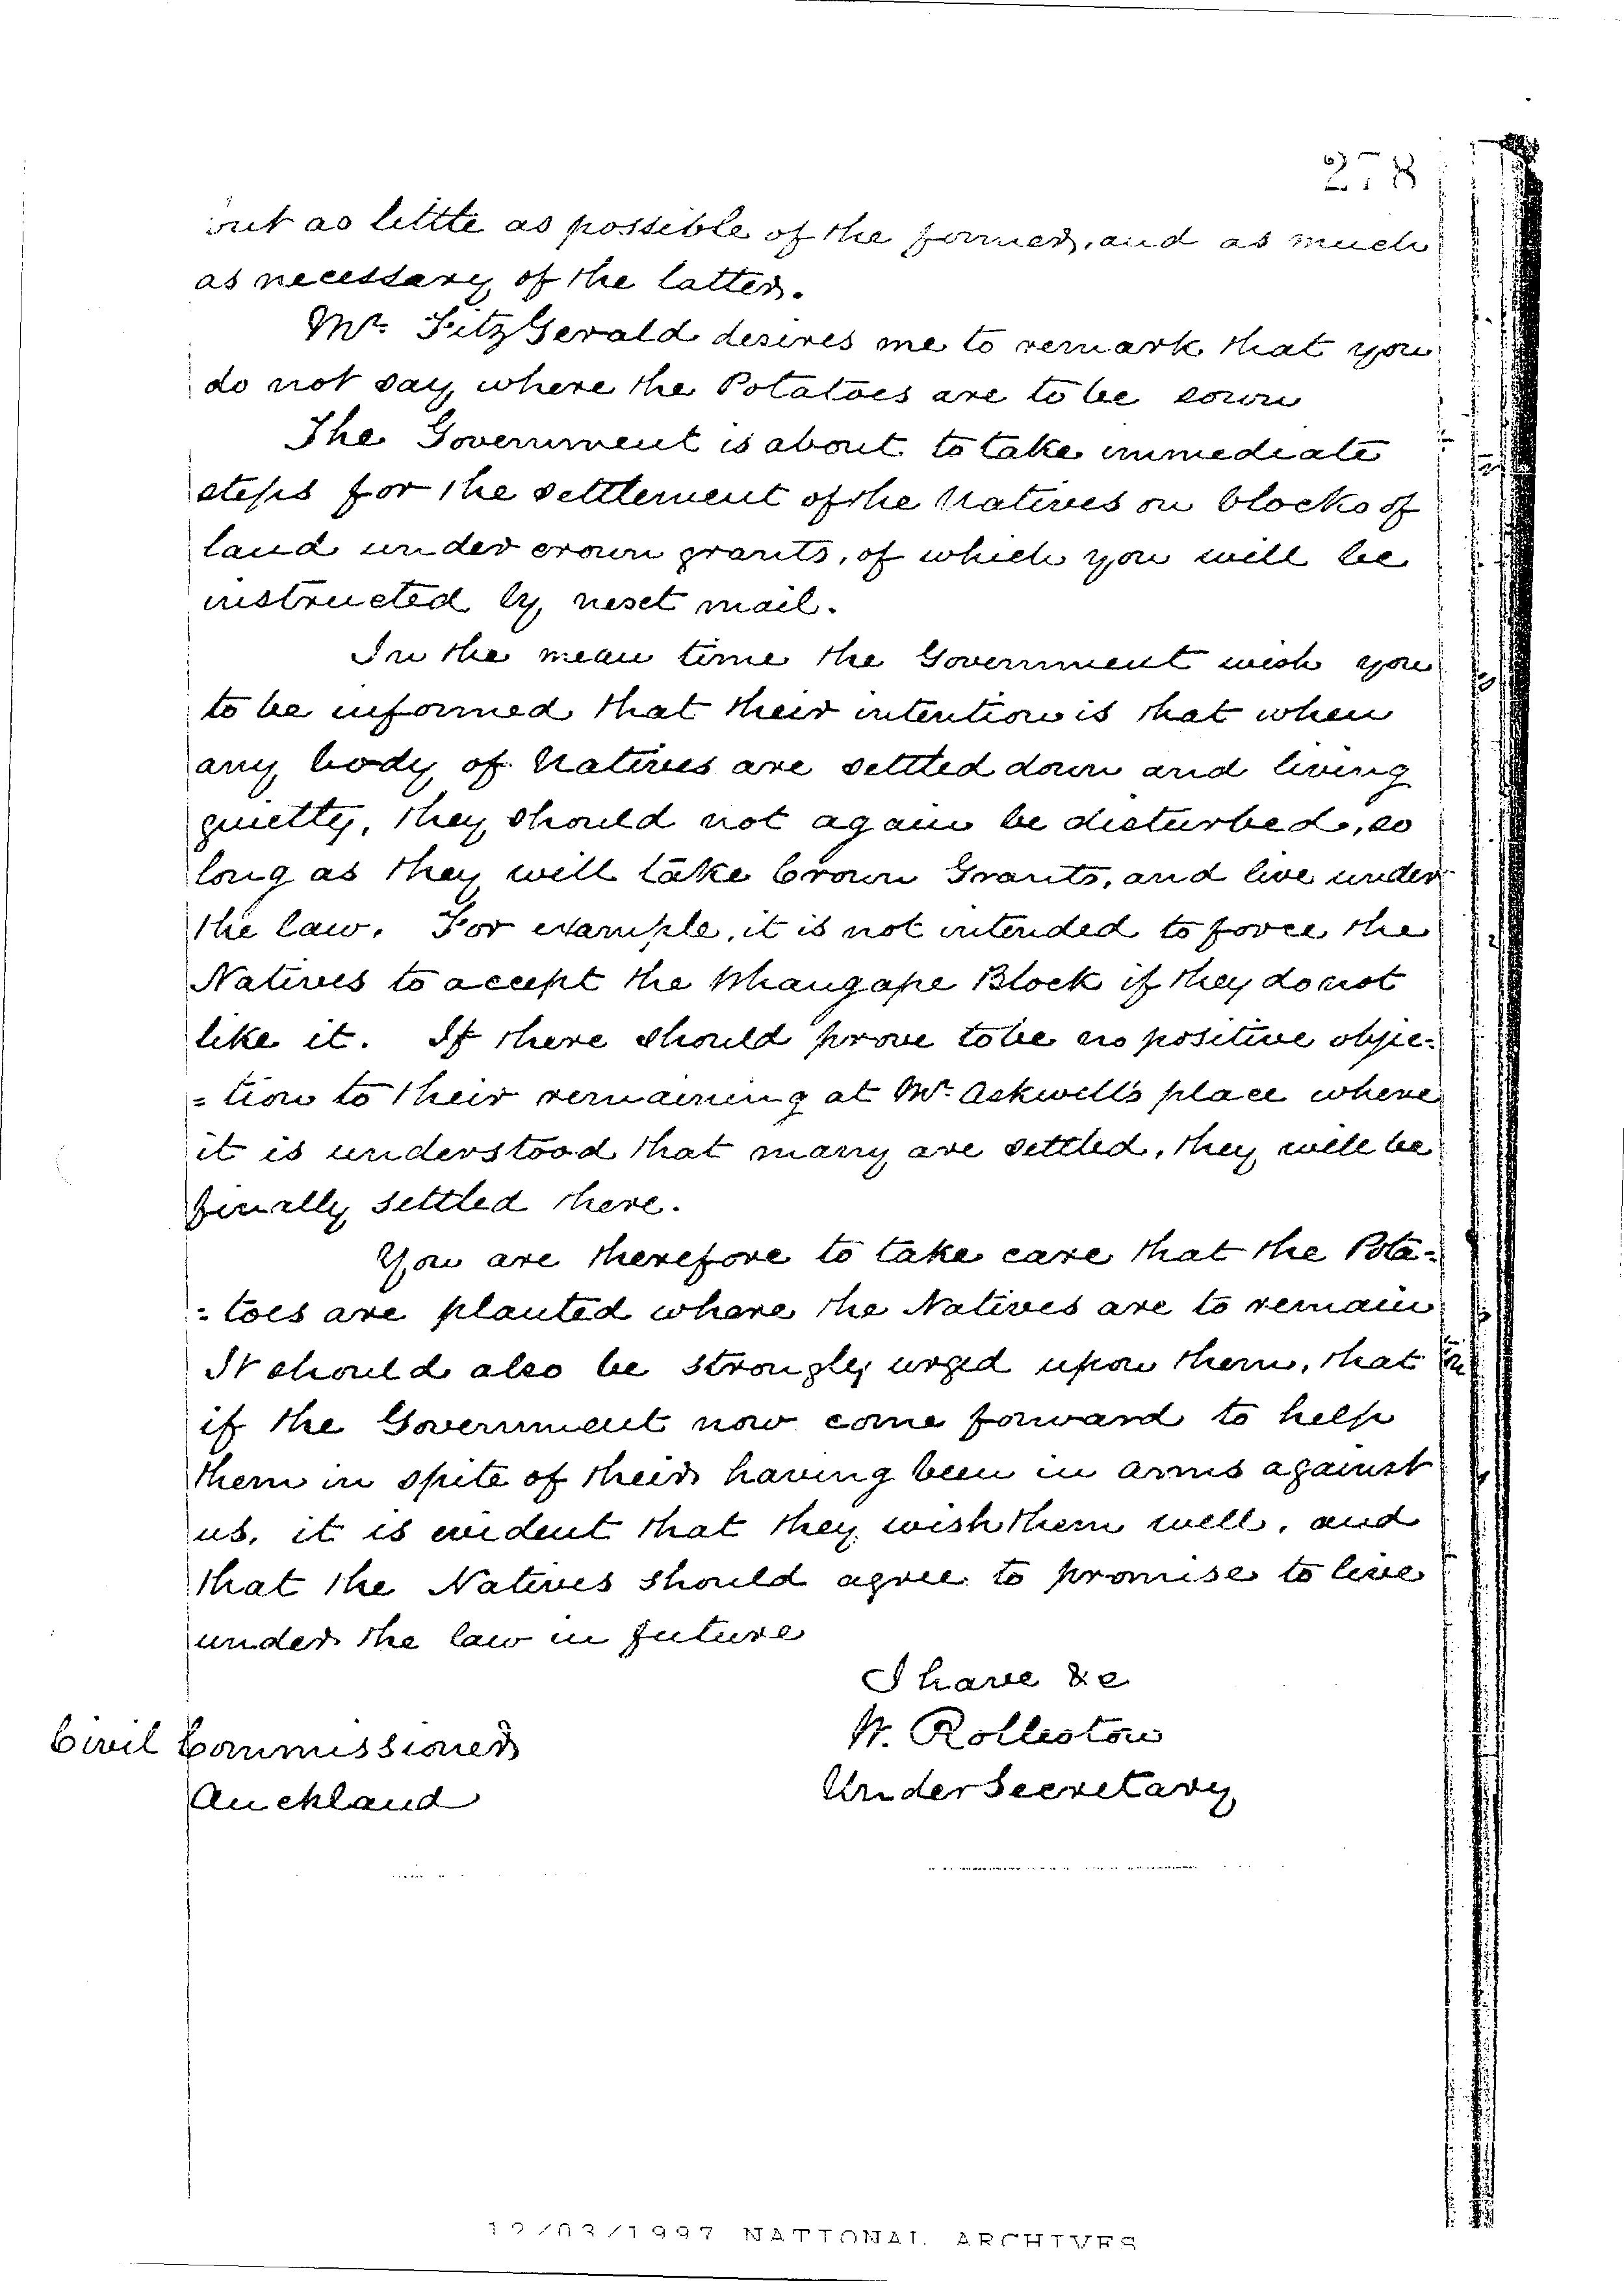 278
but as little as possible of the former, and as much
as necessary of the latter.
Mr. FitzGerald desires me to remark that you
do not say where the Potatoes are to be sown
The Government is about to take immediate
steps for the settlement of the Natives on blocks of
land under crown grants, of which you will be
instructed by next mail.
In the mean time the Government wish you
to be informed that their intention is that when
any body of Natives are settled down and living
quietly, they should not again be disturbed, so
long as they will take Crown Grants, and live under
the law. For example, it is not intended to force the
Natives to accept the Whangape Block if they do not
like it. If there should prove to be no positive objec-
-tion to their remaining at Mr. Askwell's place where
it is understood that many are settled, they will be
finally settled here.
You are therefore to take care that the Pota-
-toes are planted where the Natives are to remain
It should also be strongly urged upon them, that
if the Government now come forward to help
them in spite of their having been in arms against
us, it is evident that they wish them well, and
that the Natives should agree to promise to live
under the law in future
I have &c
W. Rolleston
Under Secretary
Civil Commissioner
Auckland
12/03/1997 NATIONAL ARCHIVES